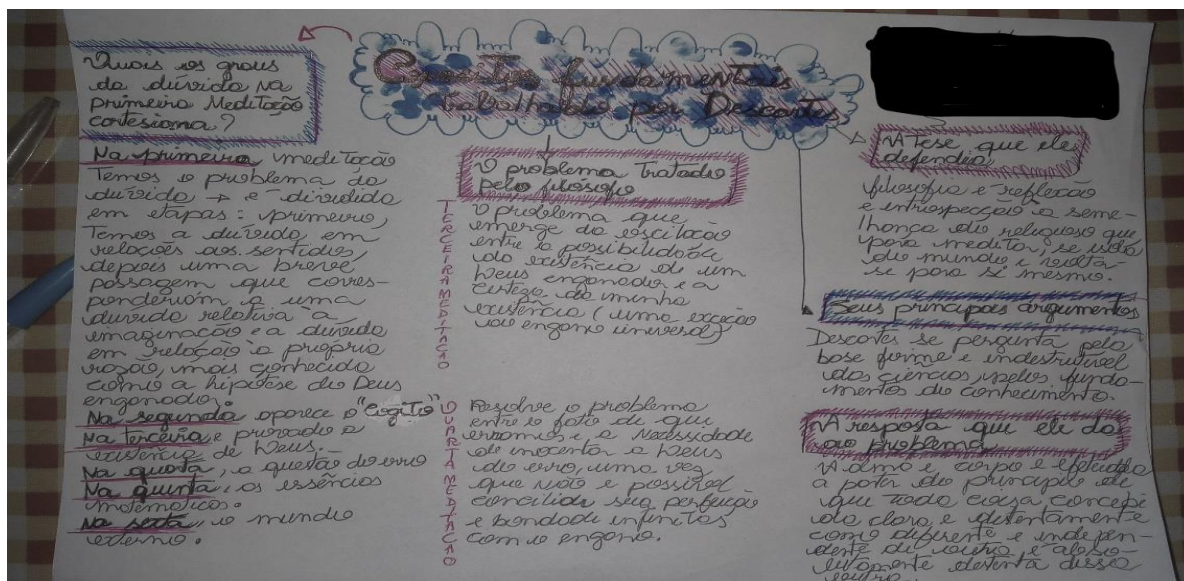 Conceitos fundamentais
trabalhado por Descartes
Quais os graus
da dúvida na
primeira Meditação
cartesiana?
Na primeira meditação
Temos o problema da
dúvida → é dividido
em etapas: primeiro,
Temos a dúvida em
relações aos sentidos,
depois uma breve
passagem que corres-
ponderiam a uma
duvida relativa à
imaginação e a dúvida
em relação a própria
razão, mais conhecido
como a hipótese do Deus
enganador.
Na segunda aparece o "Cogito"
Na terceira é provado a
existência de Deus.
Na quarta, a questão do erro
Na quinta, as essências
matemáticas.
Na sexta, o mundo
externo.
O problema tratado
pelo filósofo
TERCEIRA MEDITAÇÃO
O problema que
emerge da oscilação
entre a possibilidade
da existência de um
Deus enganador e a
certeza da minha
existência (uma exceção
ao engano universal)
QUARTA MEDITAÇÃO
Resolve o problema
entre o fato de que
erramos e a Necessidade
de inocentar a Deus
do erro, uma vez
que não é possível
conciliar sua perfeição
e bondade infinitas
com o engano.
A Tese que ele
defendia
filosofia é reflexão
e introspecção a seme-
lhança do religioso que
para meditar, se isola
do mundo e volta-
se para si mesmo.
Seus principais argumentos
Descartes se pergunta pela
base firme e indestrutível
das ciências, pelos funda-
mentos do conhecimento.
A resposta que ele da
ao problema
A alma e corpo é
a partir do princípio de
que toda coisa concebi
da clara e distintamente
como diferente e indepen-
dente de outra é abso-
lutamente distinta dissea
outra.